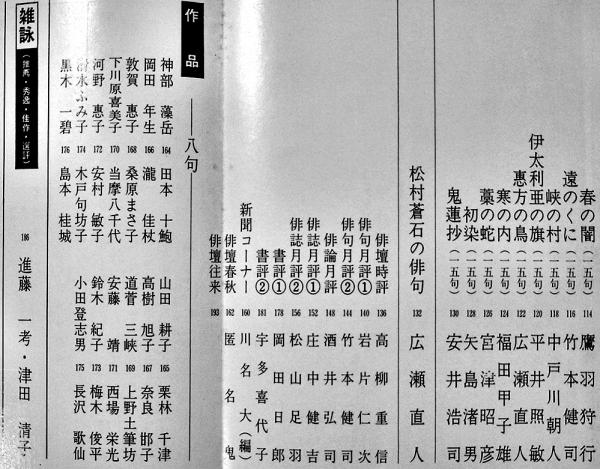 春の闇（一五句）114 鷹羽狩行
遠のくに（一五句）116 竹本健司
峡の村（一五句）118 中戸川朝人
伊太利亜の旗（一五句）120 平井照敏
恵方の鳥（一五句）122 広瀬直人
寒の内（一五句）124 福田甲子雄
藁の蛇（一五句）126 宮津昭彦
初染（一五句）128 矢島渚男
鬼蓮抄（一五句）130 安井浩司
松村蒼石の俳句 132 広瀬直人
俳壇時評 136 高柳重信
俳句月評① 140 岩片仁次
俳句月評② 144 竹本健司
俳論月評 148 酒井弘司
俳誌月評① 152 庄中健吉
俳誌月評② 156 松山足羽
書評① 178 岡田日郎
書評② 181 宇多喜代子
新聞コーナー 160 川名大（編）
俳壇春秋 162 匿名鬼
俳壇往来 193
作品
八句
神部藻岳 164 田本十鮑 山田耕子 165 栗林千津
岡田年生 166 瀧佳杖 高樹旭子 167 奈良邯子
敦賀恵子 168 桑原まさ子 道菅三峡 169 上野土筆坊
下川原喜美子 170 当摩八千代 安藤靖 171 西場栄光
河野恵子 172 安村敏子 鈴木紀子 173 梅木俊平
清水ふみ子 174 木戸句坊子 小田登志男 175 長沢歌仙
黒木一碧 176 島本桂城
雑詠（推薦・秀逸・佳作・選評）186 進藤一考・津田清子